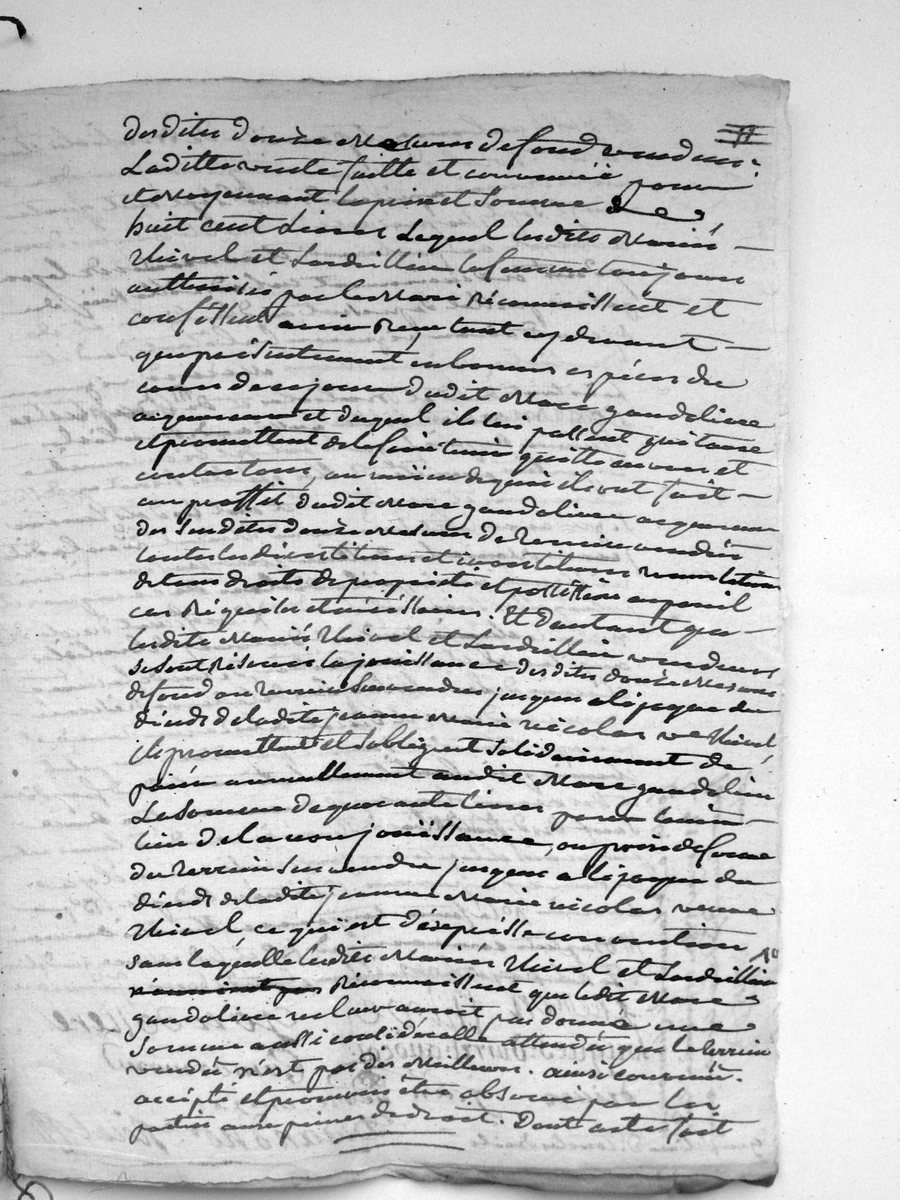 desdites douze mesures de fond vendues.
Laditte vente faitte et convenuë pour
et moyennant le prix et somme de
huit cent livres lequel lesdits mariés
Thivel et Lardellier la femme toujours
authorisée par le mari reconnoissent et
confessent avoir reçu tant cy devant
que présentement en bonnes espèces du
cours de ce jour dudit Marc gaudeliere
acquereur et duquel ils lui passent quitance
et promettent de le faire tenir quitte envers et
contre tous, au moïen de quoi ils ont fait
au proffit dudit Marc gaudeliere acquereur
des susdites douze mesures de terrein vendües
toutes les divestitures et investitures translations
de tous droits de propriété et possession en pareil
cas réquises et nécéssaires. Et d'autant que
lesdits mariés Thivel et Lardellier vendeurs
se sont réservé la jouissance desdites douze mesures
de fond ou terrein sus vendues jusques a l'époque du
décès de ladite jeanne Marie nicolas ve Thivel
ils promettent et s'obligent solidairement de
païer annuellement audit Marc gaudeliere
la somme de quarante livres pour tenir
lieu de la non jouïssance, ou prix de ferme
du terrein sus vendu jusques a l'époque du
décès de ladite jeanne Marie nicolas veuve
Thivel, ce qui est d'éxpresse convention
sans laquelle lesdits mariés Thivel et Lardellier
n'auroient pas reconnoissent que ledit Marc
gaudeliere ne leur auroit pas donné une
somme aussi considerable attendu que le terrein
vendu n'est pas des meilleurs. ainsi convenu.
accepté et promis être observé par les
parties aux peines de droit. Dont acte fait